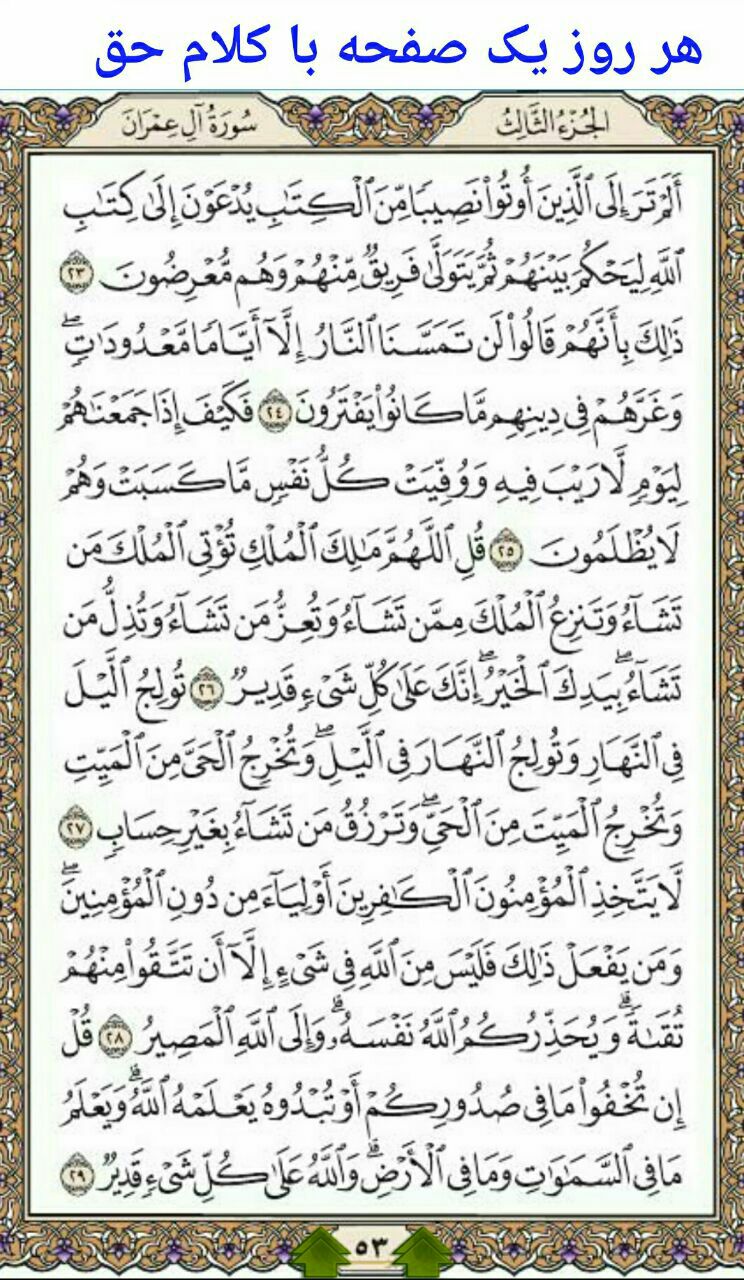 هر روز یک صفحه با کلام حق
الجُزْءُ الثَّالِثُ
سُورَةُ آلِ عِمْرَانَ
أَلَمْ تَرَ إِلَى ٱلَّذِينَ أُوتُوا۟ نَصِيبًا مِّنَ ٱلْكِتَـٰبِ يُدْعَوْنَ إِلَىٰ كِتَـٰبِ
ٱللَّهِ لِيَحْكُمَ بَيْنَهُمْ ثُمَّ يَتَوَلَّىٰ فَرِيقٌ مِّنْهُمْ وَهُم مُّعْرِضُونَ ٢٣
ذَٰلِكَ بِأَنَّهُمْ قَالُوا۟ لَن تَمَسَّنَا ٱلنَّارُ إِلَّآ أَيَّامًا مَّعْدُودَٰتٍ ۖ
وَغَرَّهُمْ فِى دِينِهِم مَّا كَانُوا۟ يَفْتَرُونَ ٢٤ فَكَيْفَ إِذَا جَمَعْنَـٰهُمْ
لِيَوْمٍ لَّا رَيْبَ فِيهِ وَوُفِّيَتْ كُلُّ نَفْسٍ مَّا كَسَبَتْ وَهُمْ
لَا يُظْلَمُونَ ٢٥ قُلِ ٱللَّهُمَّ مَـٰلِكَ ٱلْمُلْكِ تُؤْتِى ٱلْمُلْكَ مَن
تَشَآءُ وَتَنزِعُ ٱلْمُلْكَ مِمَّن تَشَآءُ وَتُعِزُّ مَن تَشَآءُ وَتُذِلُّ مَن
تَشَآءُ ۖ بِيَدِكَ ٱلْخَيْرُ ۖ إِنَّكَ عَلَىٰ كُلِّ شَىْءٍ قَدِيرٌ ٢٦ تُولِجُ ٱلَّيْلَ
فِى ٱلنَّهَارِ وَتُولِجُ ٱلنَّهَارَ فِى ٱلَّيْلِ ۖ وَتُخْرِجُ ٱلْحَىَّ مِنَ ٱلْمَيِّتِ
وَتُخْرِجُ ٱلْمَيِّتَ مِنَ ٱلْحَىِّ ۖ وَتَرْزُقُ مَن تَشَآءُ بِغَيْرِ حِسَابٍ ٢٧
لَّا يَتَّخِذِ ٱلْمُؤْمِنُونَ ٱلْكَـٰفِرِينَ أَوْلِيَآءَ مِن دُونِ ٱلْمُؤْمِنِينَ ۖ
وَمَن يَفْعَلْ ذَٰلِكَ فَلَيْسَ مِنَ ٱللَّهِ فِى شَىْءٍ إِلَّآ أَن تَتَّقُوا۟ مِنْهُمْ
تُقَىٰةً ۗ وَيُحَذِّرُكُمُ ٱللَّهُ نَفْسَهُۥ ۗ وَإِلَى ٱللَّهِ ٱلْمَصِيرُ ٢٨ قُلْ
إِن تُخْفُوا۟ مَا فِى صُدُورِكُمْ أَوْ تُبْدُوهُ يَعْلَمْهُ ٱللَّهُ ۗ وَيَعْلَمُ
مَا فِى ٱلسَّمَـٰوَٰتِ وَمَا فِى ٱلْأَرْضِ ۗ وَٱللَّهُ عَلَىٰ كُلِّ شَىْءٍ قَدِيرٌ ٢٩
٥٣